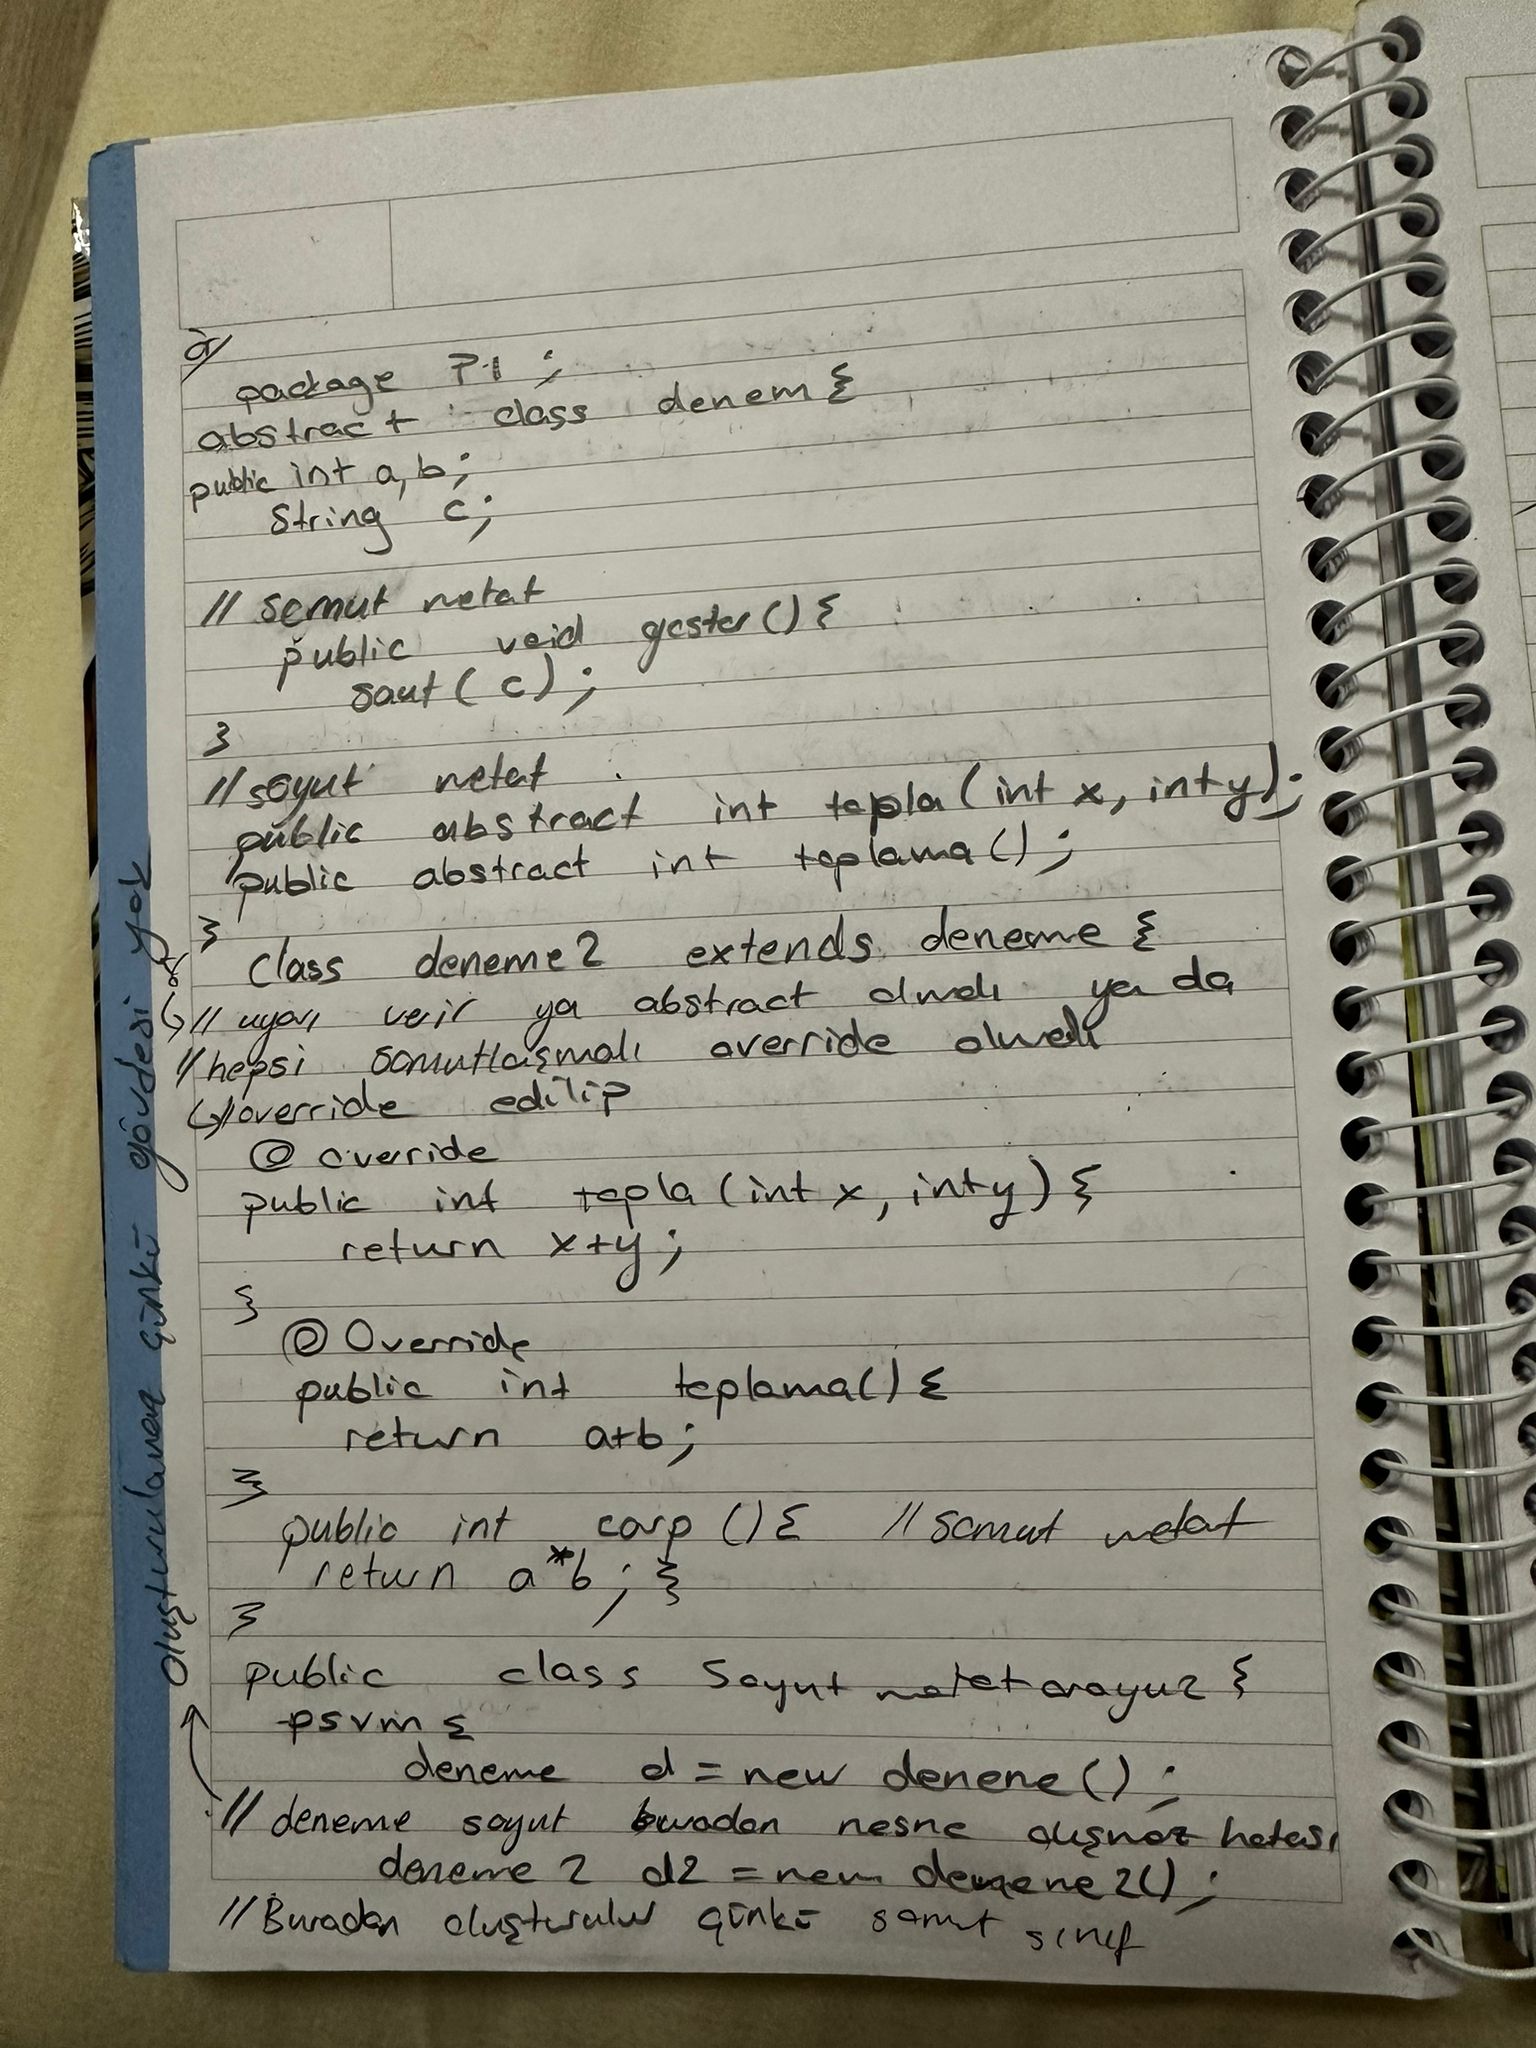 package P1 ;
abstract class denem {
public int a,b;
String c;
// somut metot
public void goster() {
sout( c) ;
}
// soyut metot
public abstract int topla (int x, int y) ;
public abstract int toplama() ;
}
class deneme2 extends deneme {
// uyarı verir ya abstract olmalı ya da
// hepsi somutlaşmalı override olmalı
// override edilip
@ override
public int topla (int x, int y) {
return x+y ;
}
@ Override
public int toplama() {
return a+b ;
}
public int carp () { // somut metot
return a*b ; }
}
public class Soyut metot arayuz {
psvm {
deneme d = new deneme () ;
// deneme soyut buradan nesne oluşmaz hatası
deneme 2 d2 = new deneme 2() ;
// Buradan oluşturulur çünkü somut sınıf
oluşturulamaz çünkü gövdesi yok